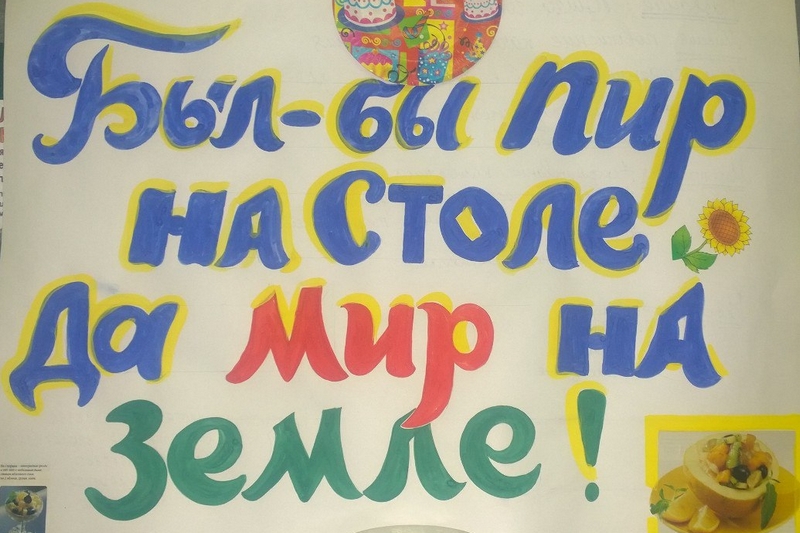 Был-бы пир
на столе
да мир на
земле!